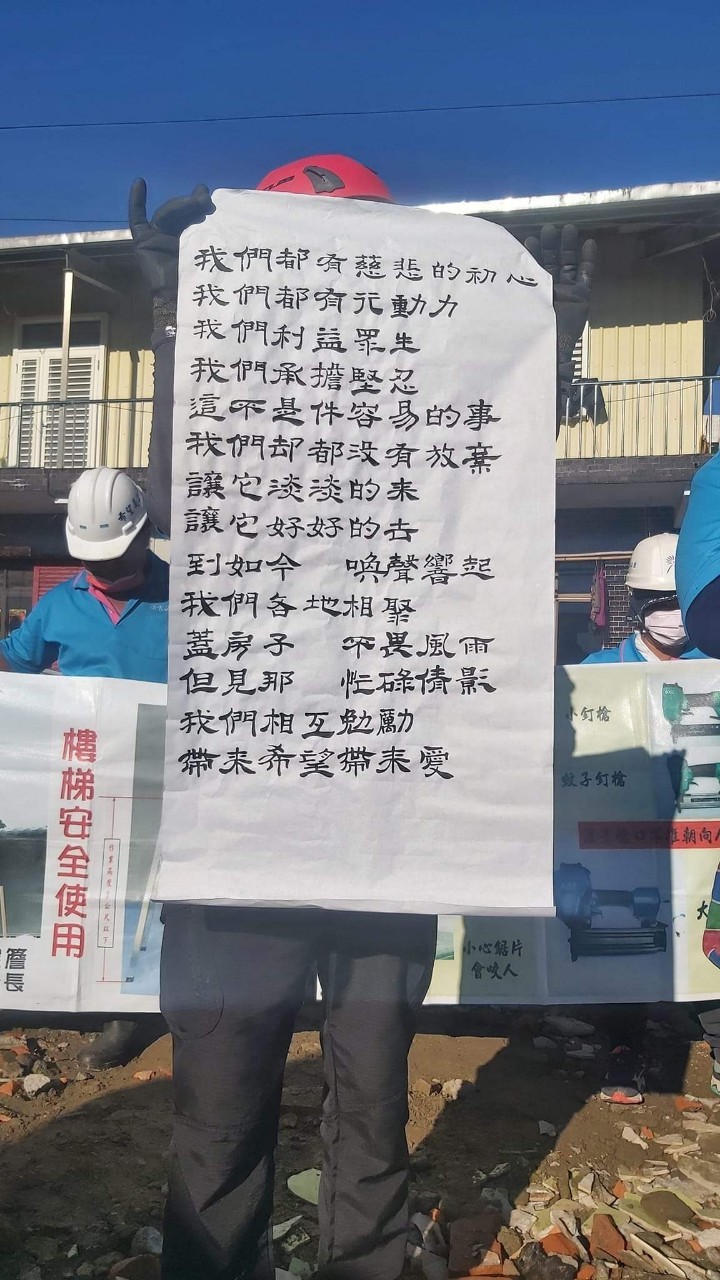 我們都有慈悲的初心
我們都有行動力
我們利益眾生
我們承擔堅忍
這不是件容易的事
我們却都没有放棄
讓它淡淡的來
讓它好好的去
到如今 喚聲響起
我們各地相聚
蓋房子 不畏風雨
但見那 忙碌倩影
我們相互勉勵
帶来希望帶来愛
樓梯安全使用
小釘槍
蚊子釘槍
朝向人
小心鋸片
會咬人
大
長